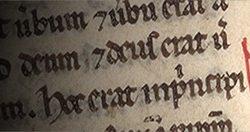 t ūbum ⁊ ūbū erat a
deum ⁊ deus erat ū
m. Hoc erat inpͥncipi